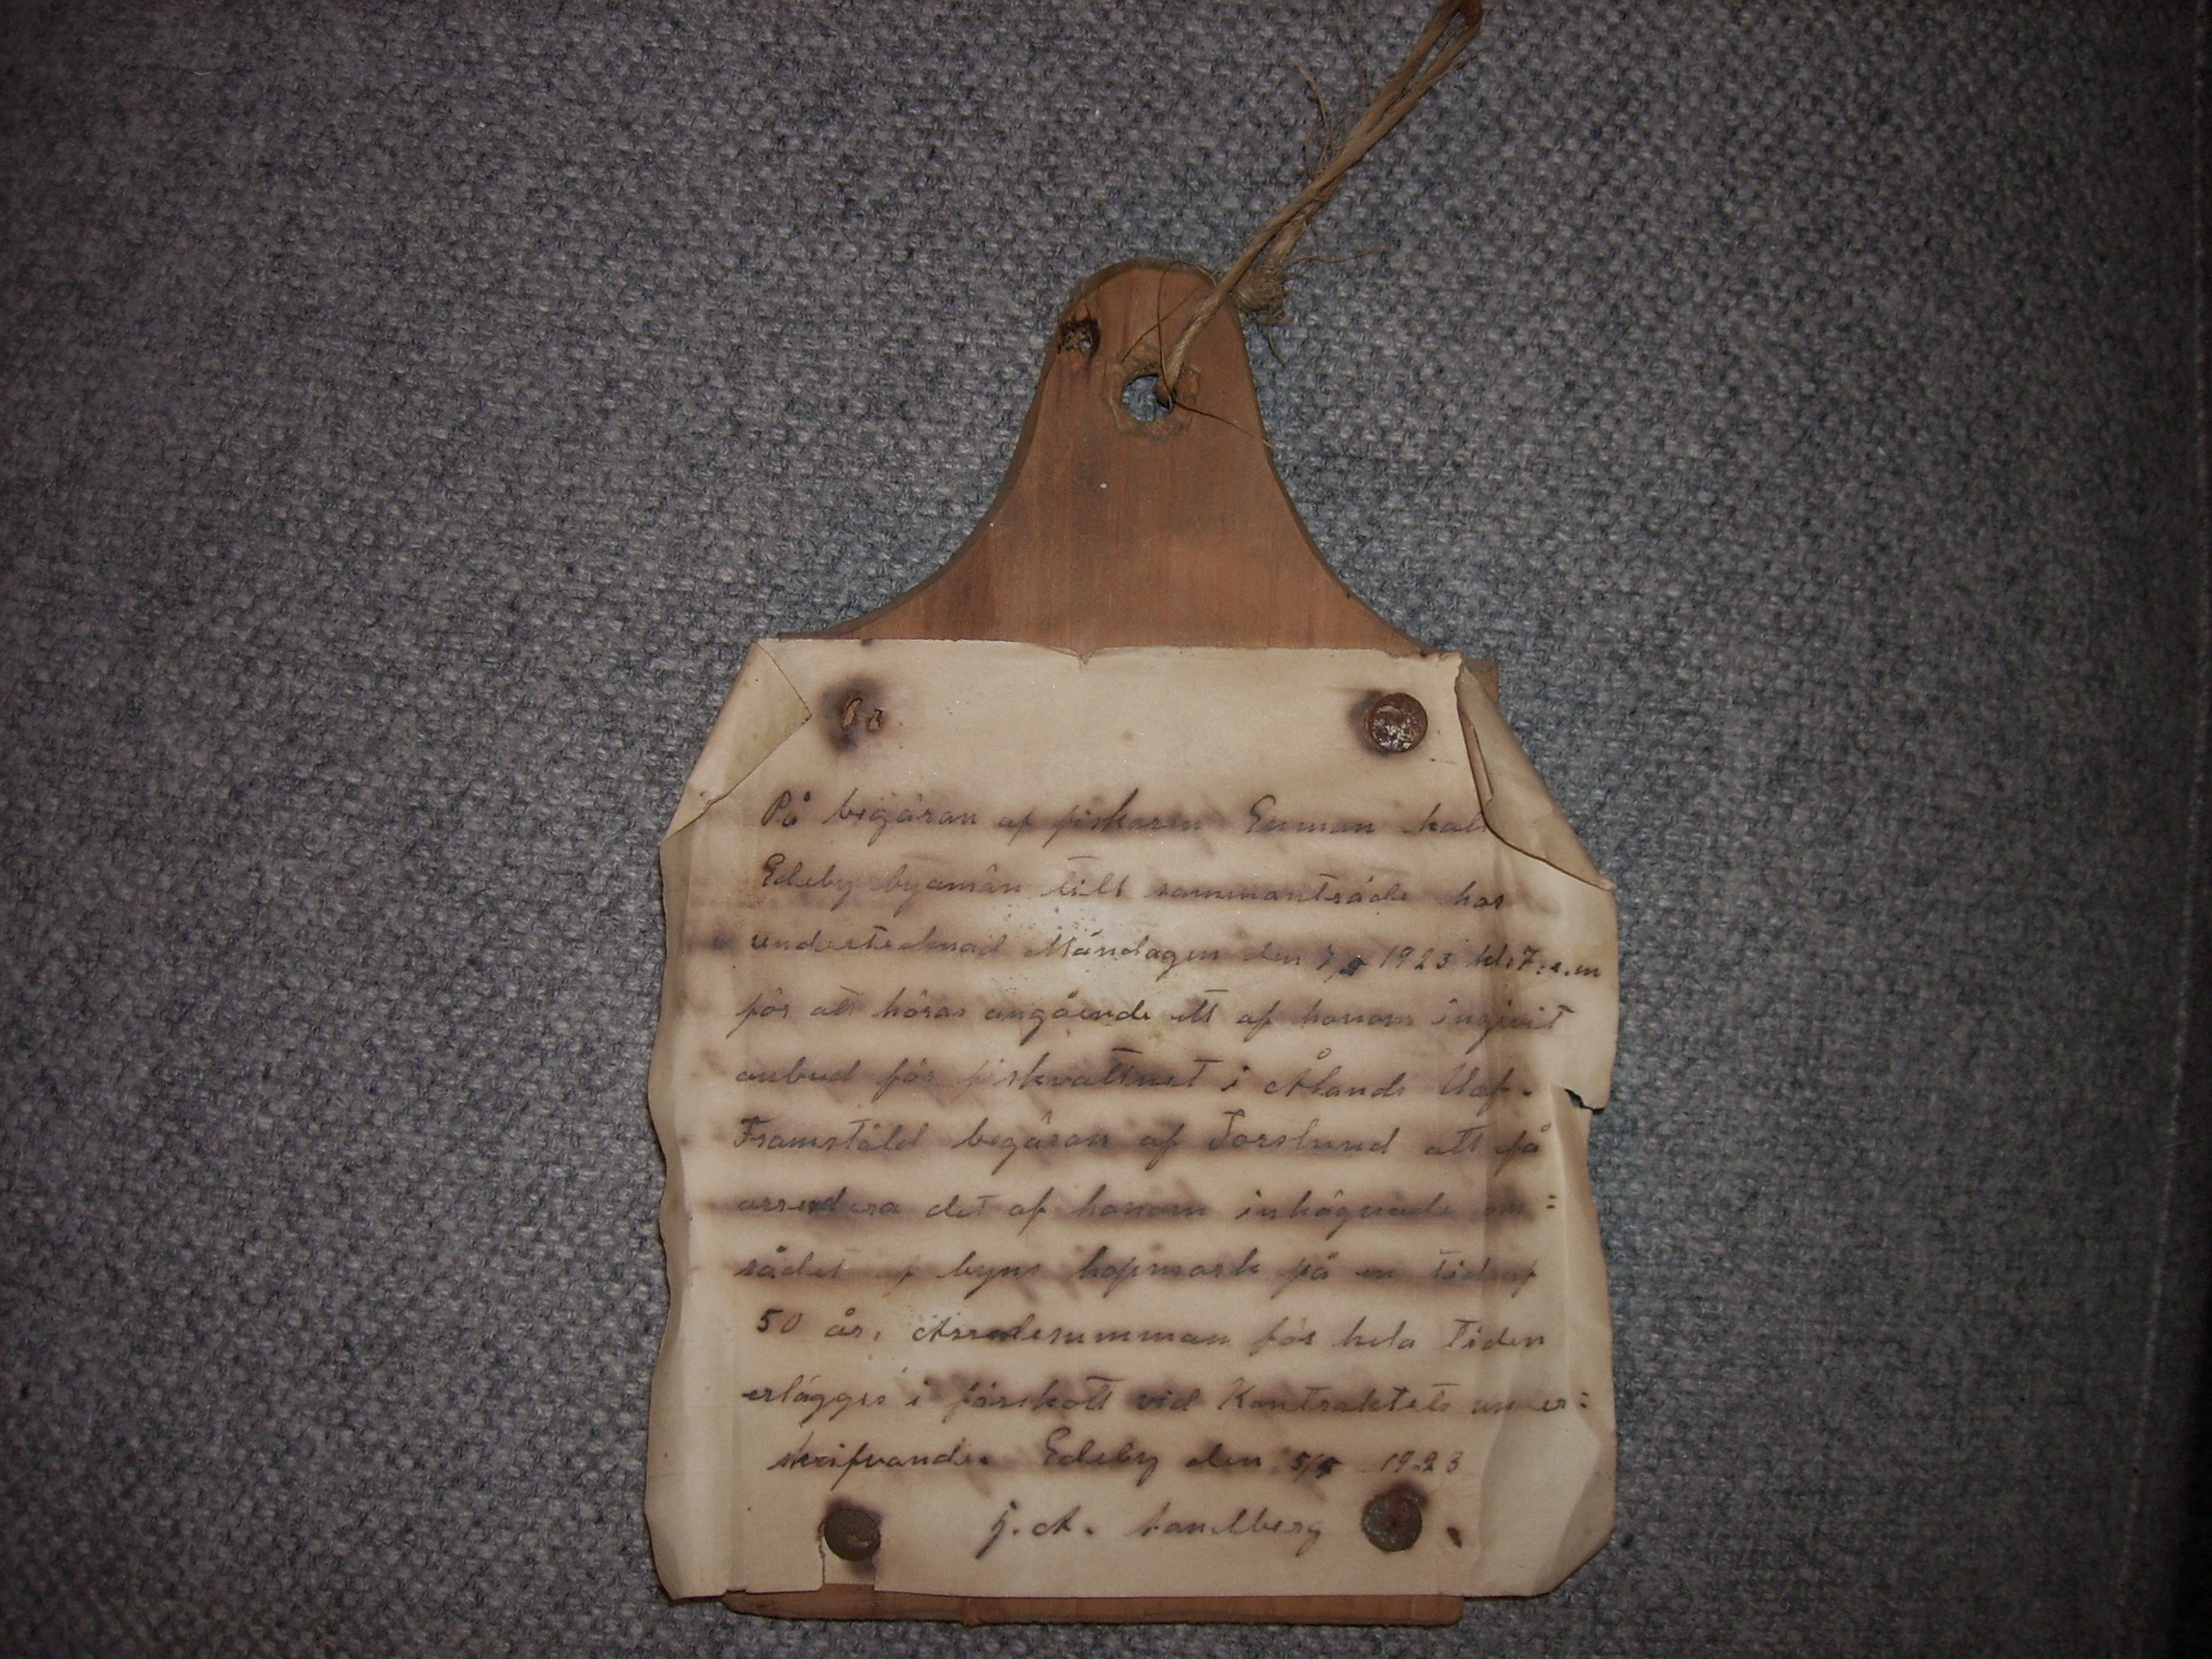 På begäran af fiskaren Enman kall
Edeby byamän till sammanträde hos
undertecknad Måndagen den 7/5 1923 kl. 7. e.m
för att höras angående ett af honom ingivit
anbud för fiskvattnet i Ålands Haf.
Framstäld begäran af Forslund att få
arrendera det af honom inhägnade om=
rådet af byns hopmark på en tid af
50 år. Arrendesumman för hela tiden
erlägges i förskott vid Kontraktets under=
skrifvande. Edeby den 5/5 1923
J. A. Sandberg